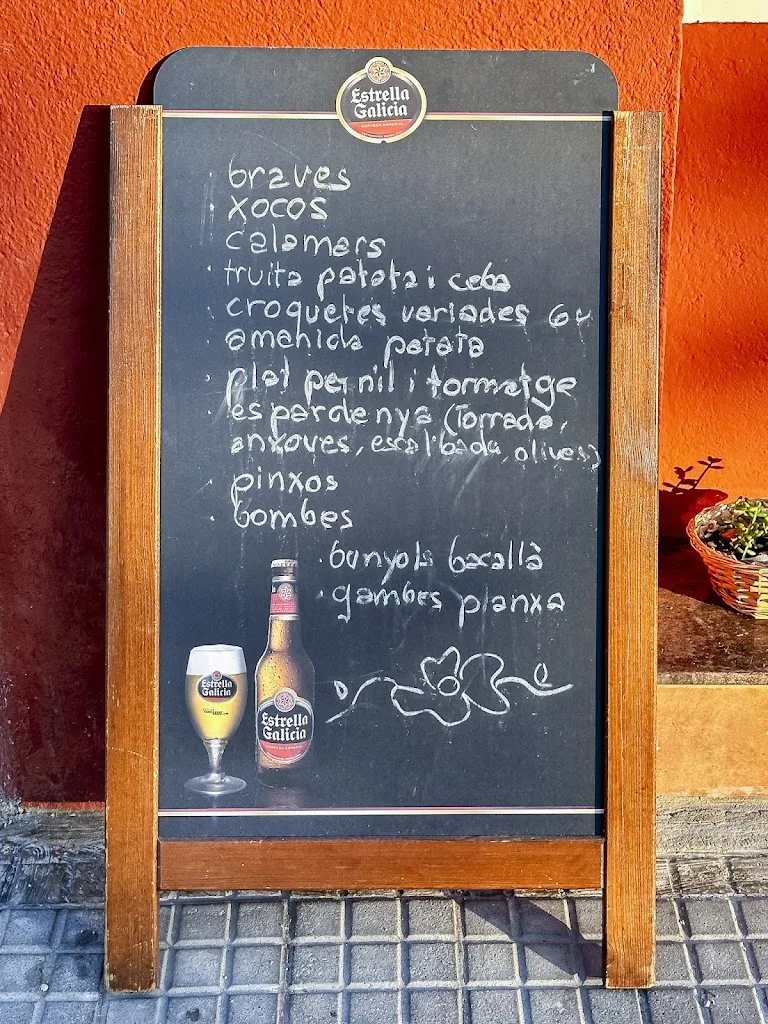 Estrella
Galicia
· braves
· xocos
calamars
· truita patata i ceba
· croquetes variades 6u
· amanida patata
· plat pernil i formatge
· espardenya (torrada,
anxoves, escalibada, olives)
· pinxos
· bombes
· bunyols bacallà
· gambes planxa
Estrella
Galicia
Estrella
Galicia